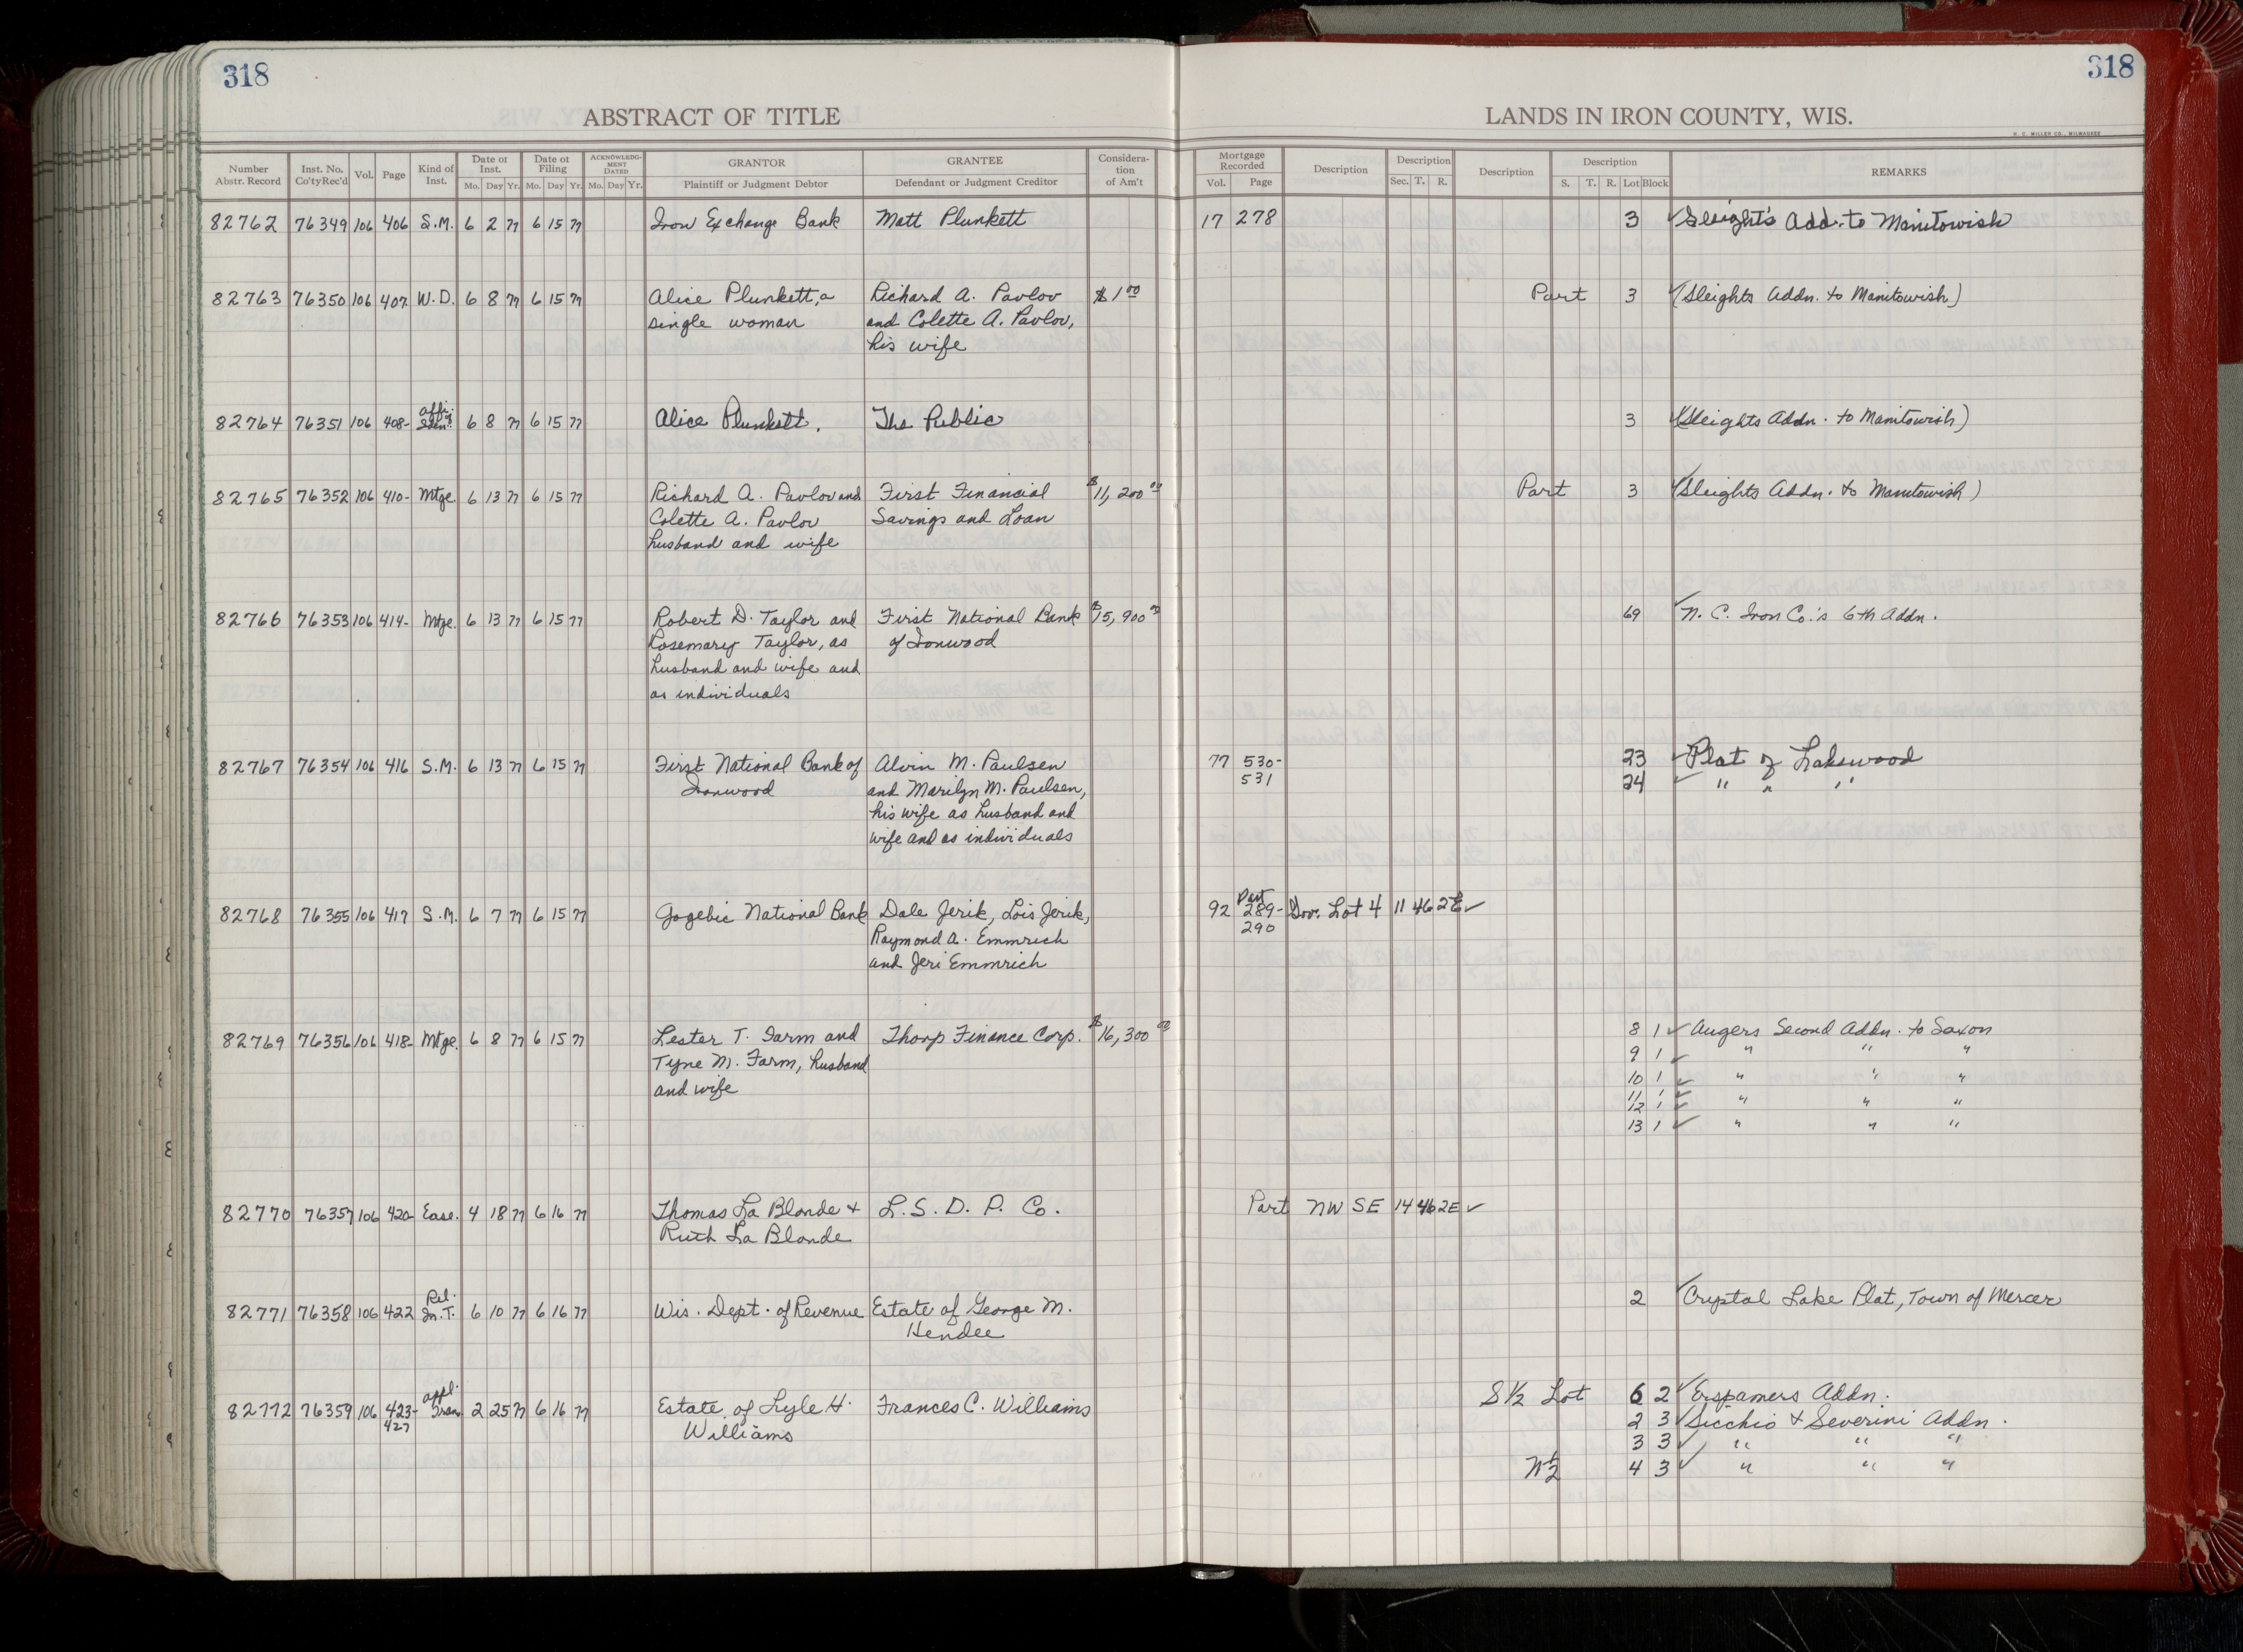 318
318
ABSTRACT OF TITLE
LANDS IN IRON COUNTY, WIS.
H. C. MILLER CO., MILWAUKEE
Number Abstr. Record Inst. No. Co'ty Rec'd Vol. Page Kind of Inst. Date of Inst. Mo. Day Yr. Date of Filing Mo. Day Yr. ACKNOWLEDGMENT DATED Mo. Day Yr. GRANTOR Plaintiff or Judgment Debtor GRANTEE Defendant or Judgment Creditor Consideration of Am't Mortgage Recorded Vol. Page Description Description Sec. T. R. Description Description S. T. R. Lot Block REMARKS
82762 76349 106 406 S.M. 6 2 77 6 15 77 Iron Exchange Bank Matt Plunkett 17 278 3 ✓ Sleight's Add. to Manitowish
82763 76350 106 407 W.D. 6 8 77 6 15 77 Alice Plunkett, a Richard A. Pavlov $1 00 Part 3 ✓ (Sleights Addn. to Manitowish)
single woman and Colette A. Pavlov,
his wife
82764 76351 106 408- 6 8 77 6 15 77 Alice Plunkett. The Public 3 ✓ (Sleights Addn. to Manitowish)
82765 76352 106 410- Mtge 6 13 77 6 15 77 Richard A. Pavlov and First Financial $11,200 00 Part 3 ✓ (Sleights Addn. to Manitowish)
Colette A. Pavlov Savings and Loan
husband and wife
82766 76353 106 414- Mtge. 6 13 77 6 15 77 Robert D. Taylor and First National Bank $15,900 00 69 ✓ N. C. Iron Co.'s 6th Addn.
Rosemary Taylor, as of Ironwood
husband and wife and
as individuals
82767 76354 106 416 S.M. 6 13 77 6 15 77 First National Bank of Alvin M. Paulsen 77 530- 23 ✓ Plat of Lakewood
Ironwood and Marilyn M. Paulsen, 531 24 ✓ " " "
his wife as husband and
wife and as individuals
82768 76355 106 417 S.M. 6 7 77 6 15 77 Gogebic National Bank Dale Jerik, Lois Jerik, 92 289- Part Gov. Lot 4 11 46 2E ✓
Raymond A. Emmrich 290
and Jeri Emmrich
82769 76356 106 418- Mtge. 6 8 77 6 15 77 Lester T. Farm and Thorp Finance Corp. $16,300 00 8 1 ✓ Augers Second Addn. to Saxon
Tyne M. Farm, husband 9 1 ✓ " " "
and wife 10 1 ✓ " " "
11 1 ✓
12 1 ✓ " " "
13 1 ✓ " " "
82770 76357 106 420- Ease. 4 18 77 6 16 77 Thomas La Blonde + L. S. D. P. Co. Part NW SE 14 46 2E ✓
Ruth La Blonde
82771 76358 106 422 Rel. In. T. 6 10 77 6 16 77 Wis. Dept. of Revenue Estate of George M. 2 ✓ Crystal Lake Plat, Town of Mercer
Hendee
82772 76359 106 423- appl. Tran 2 25 77 6 16 77 Estate of Lyle H. Frances C. Williams S 1/2 Lot 6 2 ✓ Erspamers Addn.
427 Williams 2 3 ✓ Sicchio + Severini Addn.
3 3 ✓ " " "
N 1/2 4 3 ✓ " " "